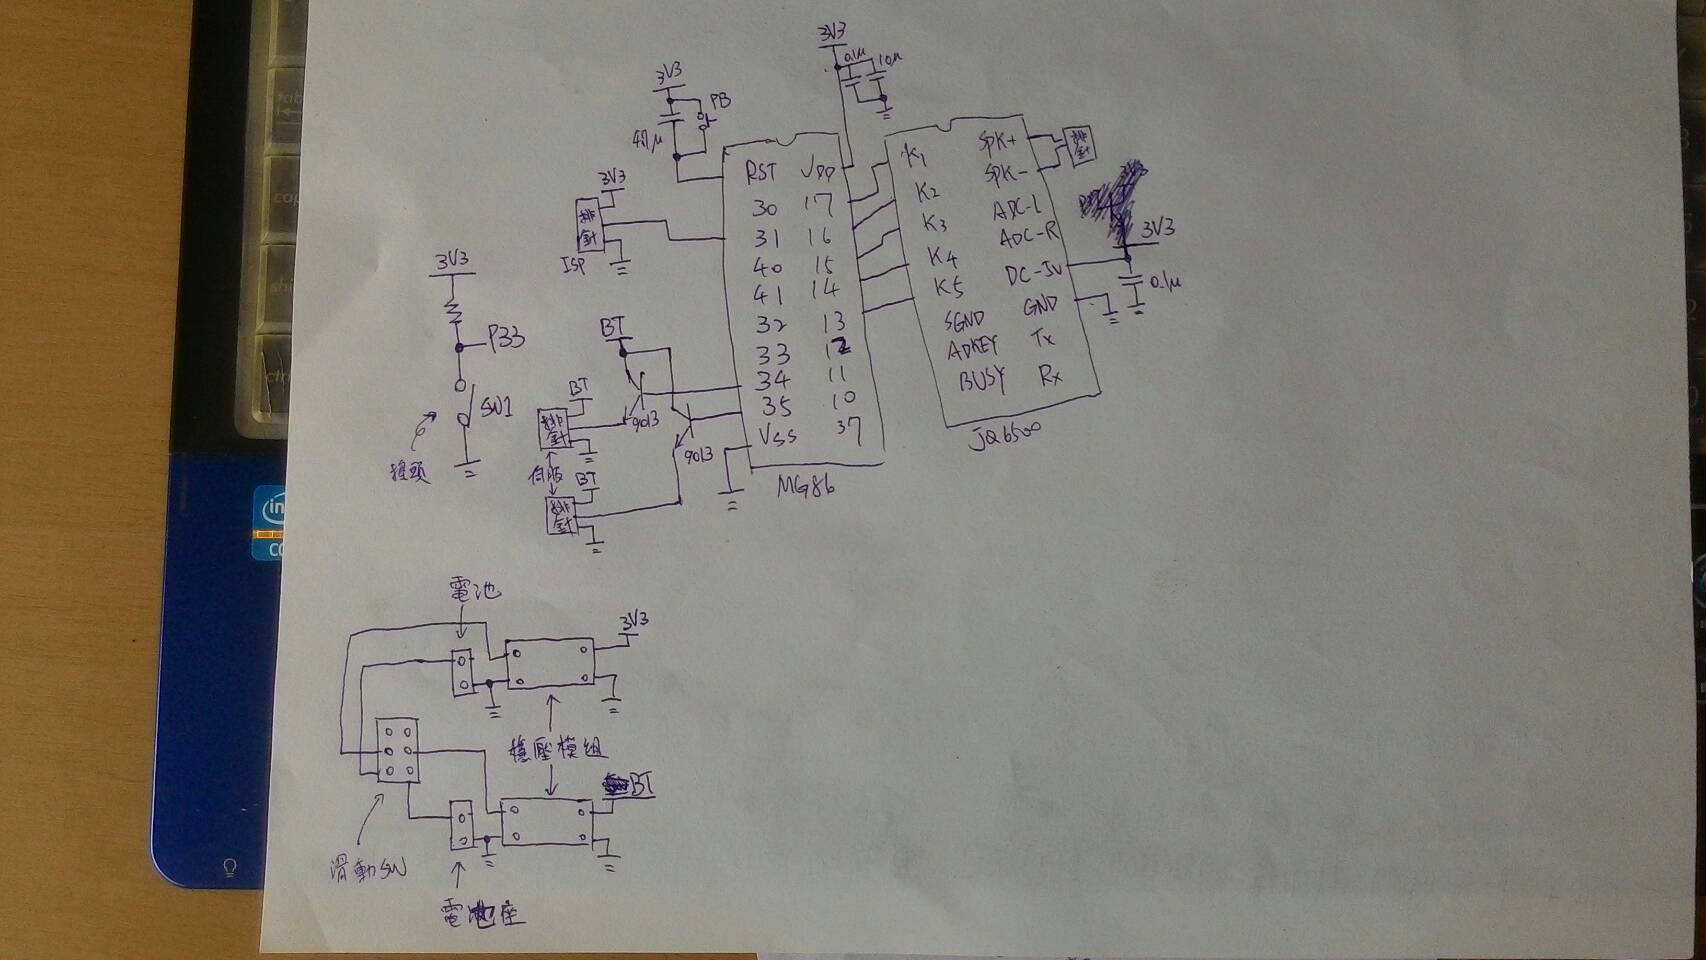 3V3
0.1μ
10μ
3V3
PB
47μ
RST VDD
30 17
31 16
40 15
41 14
32 13
33 12
34 11
35 10
VSS 37
MG86
K1
K2
K3
K4
K5
SGND
ADKEY
BUSY
SPK+
SPK-
ADC-L
ADC-R
DC-5V
GND
Tx
Rx
JQ6500
排針
3V3
0.1μ
3V3
排針
ISP
3V3
P33
SW1
搖頭
BT
9013
9013
BT
排針
伺服
BT
排針
電池
3V3
穩壓模組
BT
滑動SW
電池座